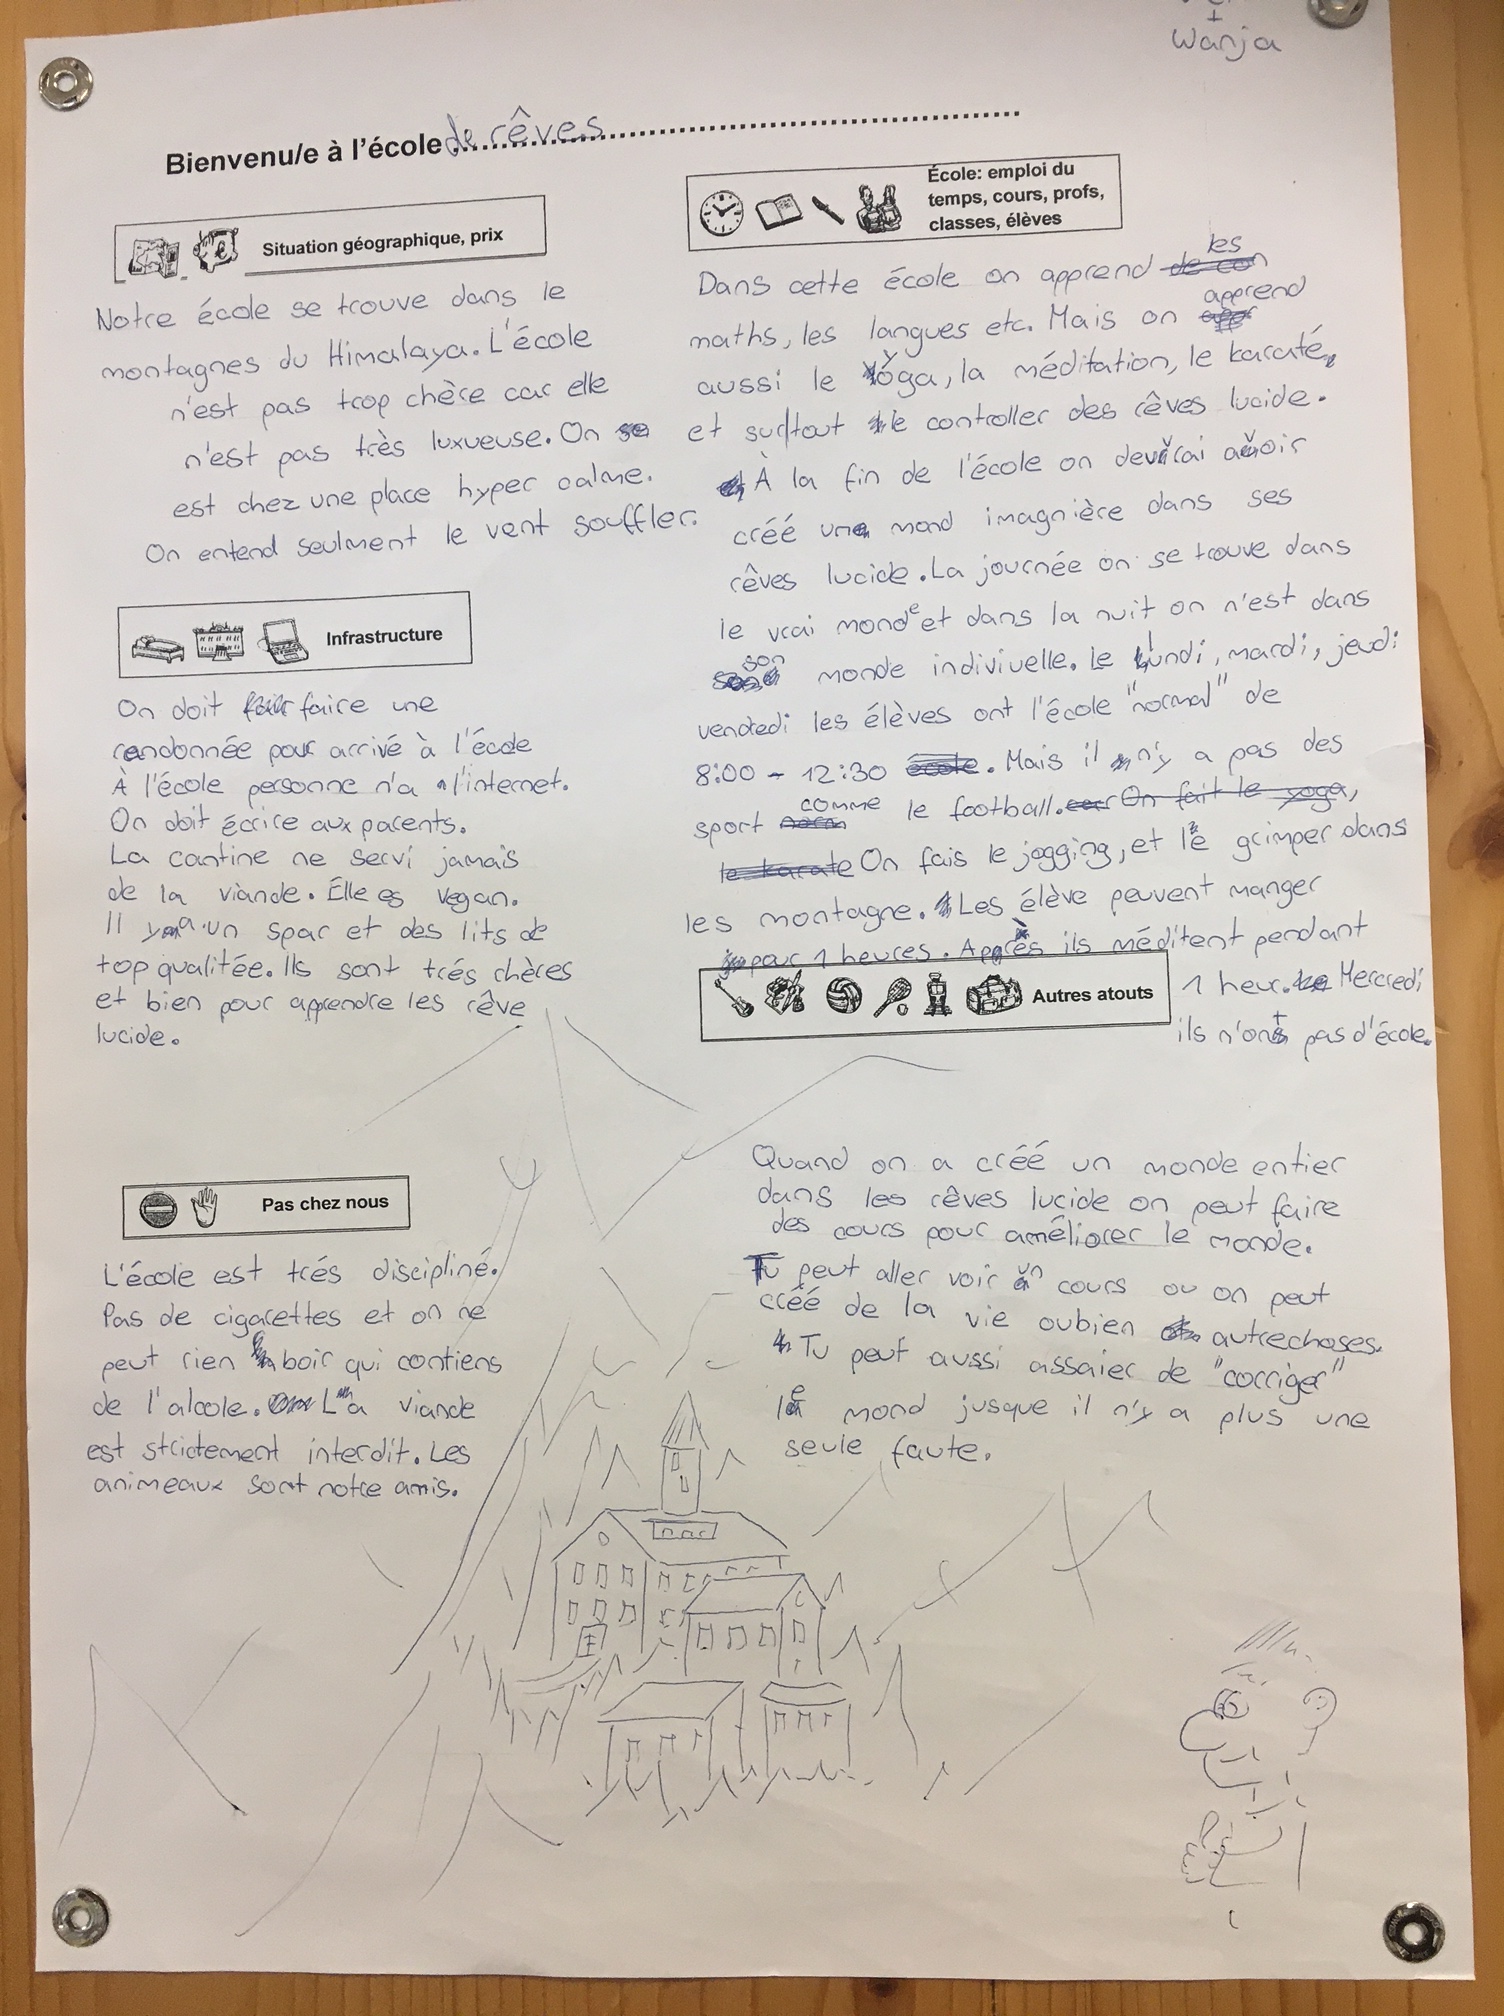 +
Wanja
Bienvenu/e à l'école de rêves
Situation géographique, prix
Notre école se trouve dans le
montagnes du Himalaya. L'école
n'est pas trop chère car elle
n'est pas très luxueuse. On
est chez une place hyper calme.
On entend seulment le vent souffler.
Infrastructure
On doit faire une
randonnée pour arrivé à l'école
À l'école personne n'a l'internet.
On doit écrire aux parents.
La cantine ne servi jamais
de la viande. Elle es vegan.
Il y a un spar et des lits de
top qualitée. Ils sont trés chères
et bien pour apprendre les rêve
lucide.
Pas chez nous
L'école est trés discipliné.
Pas de cigarettes et on ne
peut rien boir qui contiens
de l'alcole. La viande
est strictement interdit. Les
animeaux sont notre amis.
École: emploi du
temps, cours, profs,
classes, élèves
Dans cette école on apprend les
maths, les langues etc. Mais on apprend
aussi le yoga, la méditation, le karaté,
et surtout le controller des rêves lucide.
À la fin de l'école on devrai avoir
créé une mond imagnière dans ses
rêves lucide. La journée on se trouve dans
le vrai monde et dans la nuit on n'est dans
son monde indiviuelle. Le lundi, mardi, jeudi
vendredi les élèves ont l'école "normal" de
8:00 - 12:30. Mais il n'y a pas des
sport comme le football. On fait le yoga,
le karate On fais le jogging, et le grimper dans
les montagne. Les élève peuvent manger
pour 1 heures. Après ils méditent pendant
1 heur. Mercredi
ils n'ont pas d'école.
Autres atouts
Quand on a créé un monde entier
dans les rêves lucide on peut faire
des cours pour améliorer le monde.
Tu peut aller voir un cours ou on peut
créé de la vie oubien autrechoses.
Tu peut aussi assaier de "corriger"
le mond jusque il n'y a plus une
seule faute.